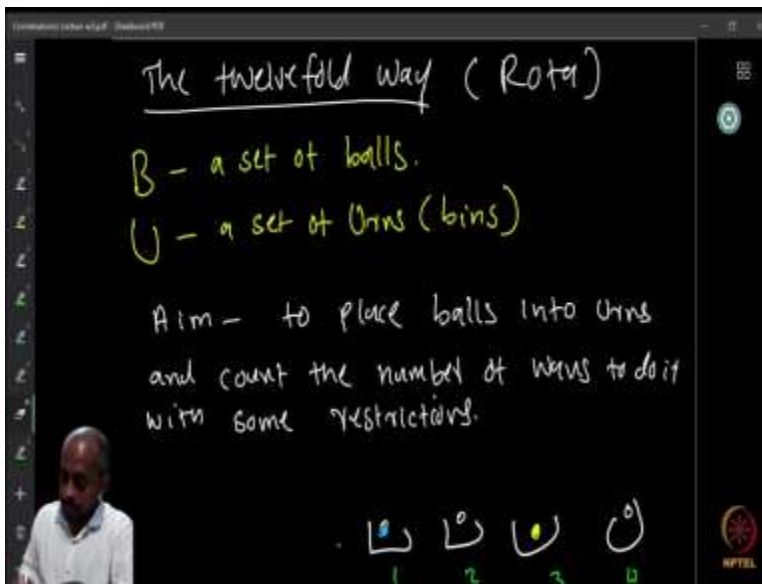 The twelvefold way (Rota)
B - a set of balls.
U - a set of Urns (bins)
Aim - to place balls into urns
and count the number of ways to do it
with some restrictions.
1 2 3
NPTEL